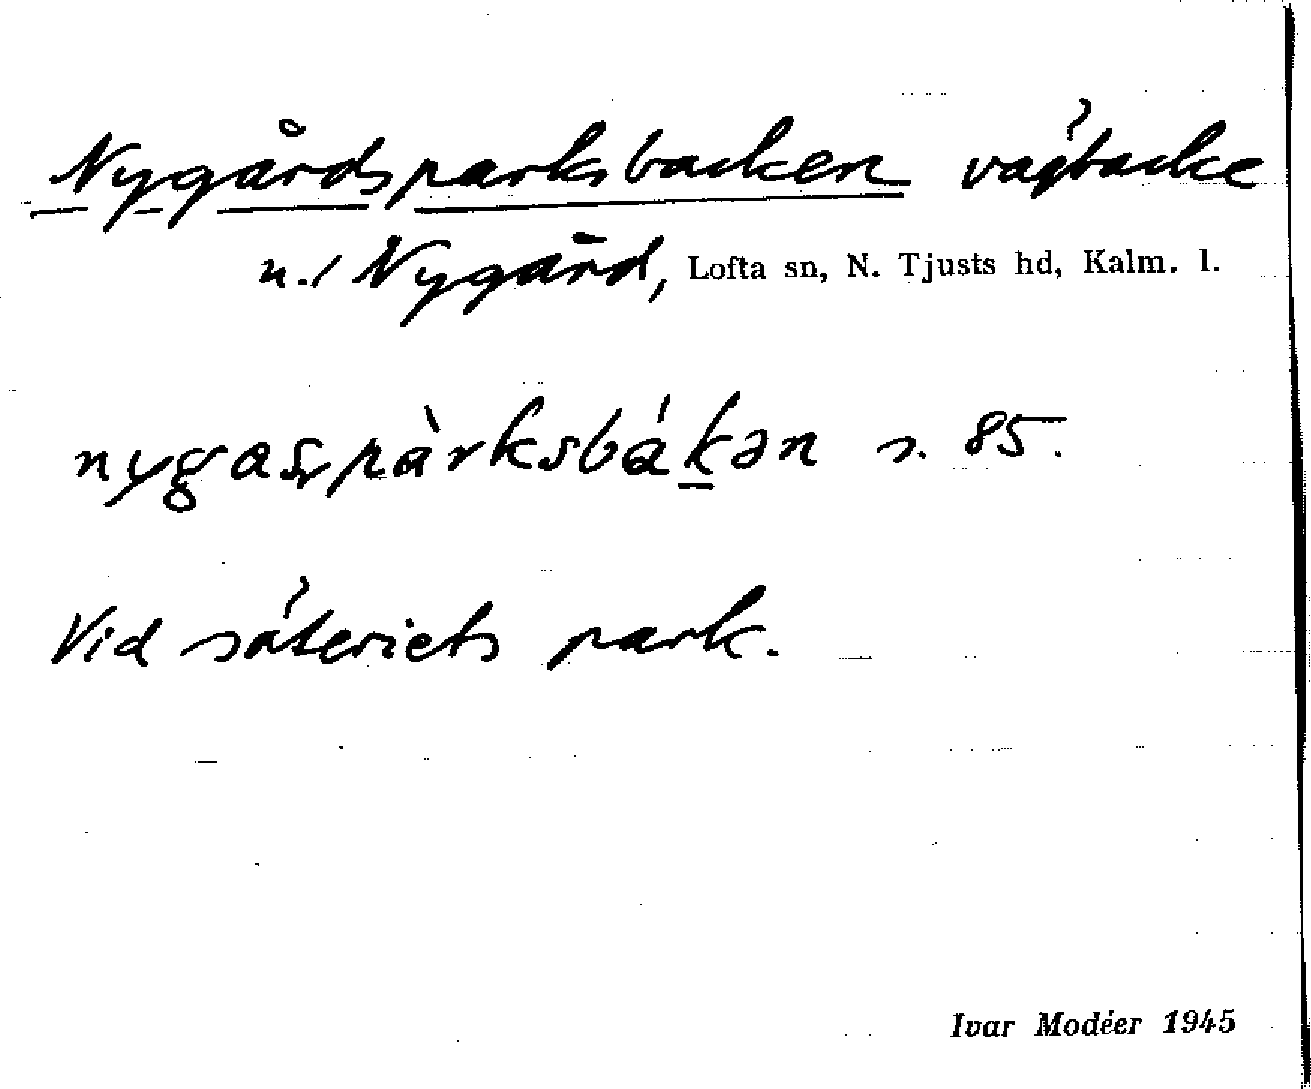 Nygårdsparksbacken vägbacke
u./ Nygård, Lofta sn, N. Tjusts hd, Kalm. l.
nygaspàrksbákən s. 85.
Vid säteriets park.
Ivar Modéer 1945